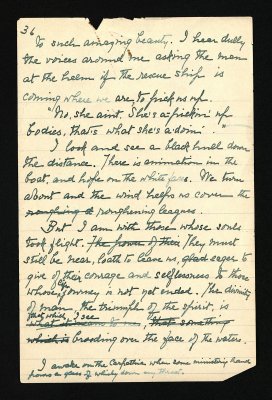 36
to such amazing beauty. I hear dully
the voices around me asking the man
at the helm if the rescue ship is
coming where we are, to pick us up.
"No, she aint. She's a pickin' up
bodies, that's what she's a doin'."
I look and see a black hull down
the distance. There is animation in the
boat, and hope on the white faces. We turn
about and the wind helps us cover the
roughing it roughening leagues.
But I am with those whose souls
took flight. The power of their They must
still be near, loath to leave us, glad eager to
give of their courage and selflessness to those
whose journey is not yet ended. The divinity
of man, the triumph of the spirit, is
that which I see
what it means to the that something
which is brooding over the face of the waters.
I awake on the Carpathia when some ministering hand
pours a glass of whisky down my throat.